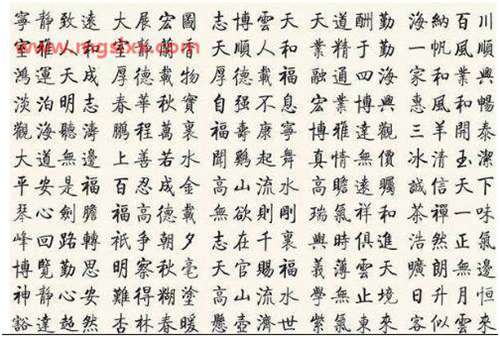 www.mgslxx.com
寧靜致遠 大展宏圖 志博雲天 天道酬勤 海納百川
室雅人和 室靜蘭香 志順人和 業精于勤 一帆風順
鴻運天成 厚德載物 厚德載福 融通四海 家和業興
淡泊明志 春華秋實 自强不息 宏業博興 惠風和暢
觀海聽濤 鵬程萬裏 福壽康寧 博雅達觀 三羊開泰
大道無邊 上善若水 聞鷄起舞 真情無價 冰清玉潔
平安是福 百忍成金 高山流水 高瞻遠矚 誠信天下
琴心劍膽 福高德載 無欲則剛 瑞氣祥和 茶禪一味
峰回路轉 祇爭朝夕 志在千裏 與時俱進 浩然正氣
博覽勤思 明察秋毫 天官賜福 義薄雲天 曠朗無邊
神靜心安 難得糊塗 高山福水 學無止境 日升月恒
豁達超然 杏林春暖 懸壺濟世 紫氣東來 客似雲來